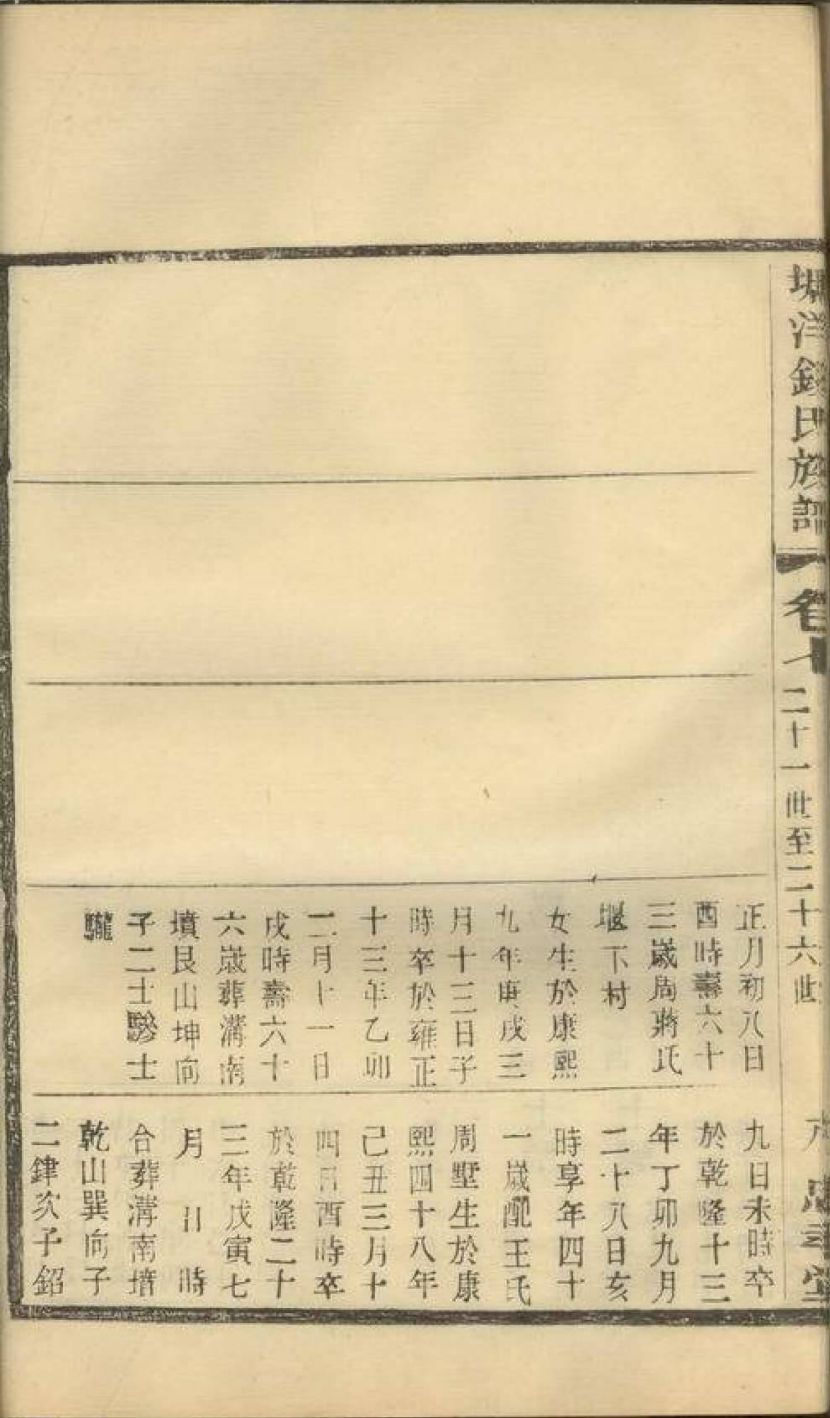 洋錢氏族譜
卷十
二十一世至二十六世
正月初八日
酉時壽六十
三歲周蔣氏
堰下村
女生於康熙
九年庚戌三
月十三日子
時卒於雍正
十三年乙卯
二月十一日
戌時壽六十
六歲葬溝南
墳艮山坤向
子二士驂士
驪
九日未時卒
於乾隆十三
年丁卯九月
二十八日亥
時享年四十
一歲配王氏
周墅生於康
熙四十八年
己丑三月十
四日酉時卒
於乾隆二十
三年戊寅七
月 日 時
合葬溝南墳
乾山巽向子
二銉次子鉊